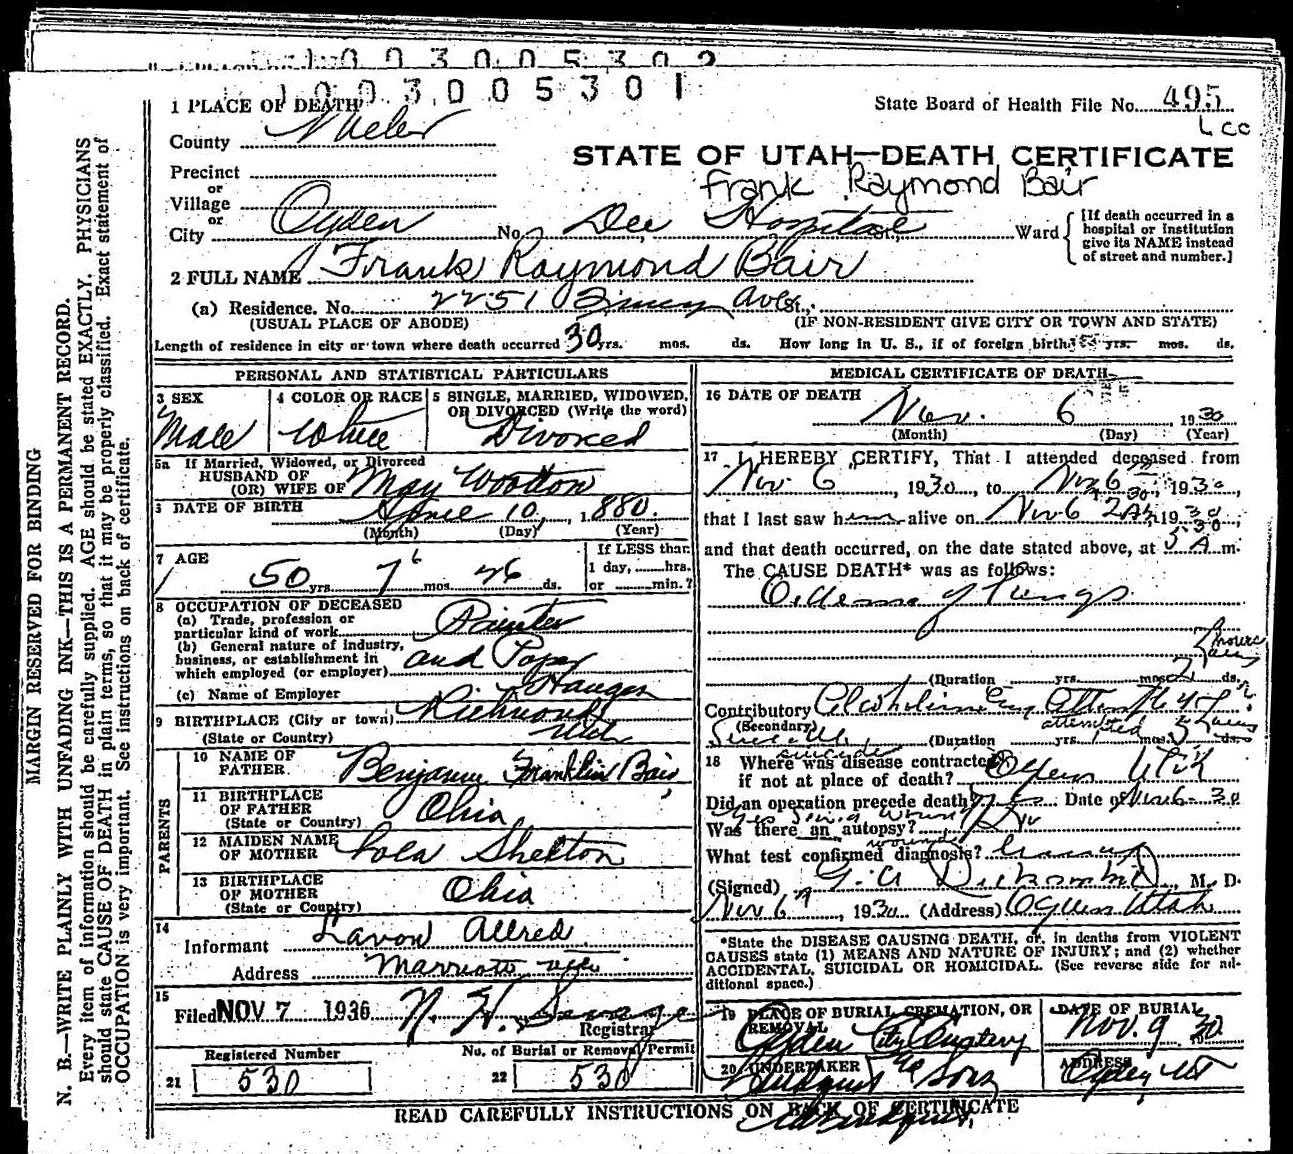 1003005302
1003005301
1 PLACE OF DEATH
State Board of Health File No. 495
County Weber
STATE OF UTAH—DEATH CERTIFICATE
Precinct
Frank Raymond Bair
or
Village
or
City Ogden No. Dee Hospital St., Ward
[If death occurred in a hospital or institution give its NAME instead of street and number.]
2 FULL NAME Frank Raymond Bair
(a) Residence. No. 2251 Ave St.,
(USUAL PLACE OF ABODE) (IF NON-RESIDENT GIVE CITY OR TOWN AND STATE)
Length of residence in city or town where death occurred 30 yrs. mos. ds. How long in U. S., if of foreign birth? yrs. mos. ds.
PERSONAL AND STATISTICAL PARTICULARS
3 SEX Male
4 COLOR OR RACE White
5 SINGLE, MARRIED, WIDOWED, OR DIVORCED (Write the word) Divorced
5a If Married, Widowed, or Divorced
HUSBAND OF
(OR) WIFE OF May Wootton
6 DATE OF BIRTH April 10, 1880.
(Month) (Day) (Year)
7 AGE 50 yrs. 7 6 mos. 26 ds.
If LESS than 1 day, hrs. or min.?
8 OCCUPATION OF DECEASED
(a) Trade, profession or particular kind of work Painter
(b) General nature of industry, business, or establishment in which employed (or employer) and Paper
(c) Name of Employer Hanger
9 BIRTHPLACE (City or town) Richmond
(State or Country) Utah
PARENTS
10 NAME OF FATHER Benjamin Franklin Bair
11 BIRTHPLACE OF FATHER (State or Country) Ohio
12 MAIDEN NAME OF MOTHER Lola Shelton
13 BIRTHPLACE OF MOTHER (State or Country) Ohio
14 Informant Lavon Allred
Address Marriott,
15 Filed NOV 7 1936 N. H. Savage
Registrar
Registered Number
21 530
No. of Burial or Removal Permit
22 530
MEDICAL CERTIFICATE OF DEATH
16 DATE OF DEATH Nov. 6, 1930
(Month) (Day) (Year)
17 I HEREBY CERTIFY, That I attended deceased from
Nov 6, 1930, to Nov 6, 1930,
that I last saw him alive on Nov 6 1930,
and that death occurred, on the date stated above, at 5.30 A m.
The CAUSE DEATH* was as follows:
Oedema of Lungs
(Duration yrs. mos. 2 ds.
Contributory Alcoholism
(Secondary) attempted
suicide (Duration yrs. mos. 5 ds.
18 Where was disease contracted
if not at place of death? Ogden Utah
Did an operation precede death? Yes Date of Nov 6-30
Was there an autopsy? No
What test confirmed diagnosis?
(Signed) M. D.
Nov 6, 1930 (Address) Ogden Utah
*State the DISEASE CAUSING DEATH, or, in deaths from VIOLENT CAUSES state (1) MEANS AND NATURE OF INJURY; and (2) whether ACCIDENTAL, SUICIDAL OR HOMICIDAL. (See reverse side for additional space.)
19 PLACE OF BURIAL, CREMATION, OR REMOVAL
Ogden City Cemetery
DATE OF BURIAL
Nov. 9 1930
20 UNDERTAKER
& Sons
ADDRESS
Ogden Ut
READ CAREFULLY INSTRUCTIONS ON BACK OF CERTIFICATE
MARGIN RESERVED FOR BINDING
N. B.—WRITE PLAINLY WITH UNFADING INK—THIS IS A PERMANENT RECORD.
Every item of information should be carefully supplied. AGE should be stated EXACTLY. PHYSICIANS
should state CAUSE OF DEATH in plain terms, so that it may be properly classified. Exact statement of
OCCUPATION is very important. See instructions on back of certificate.